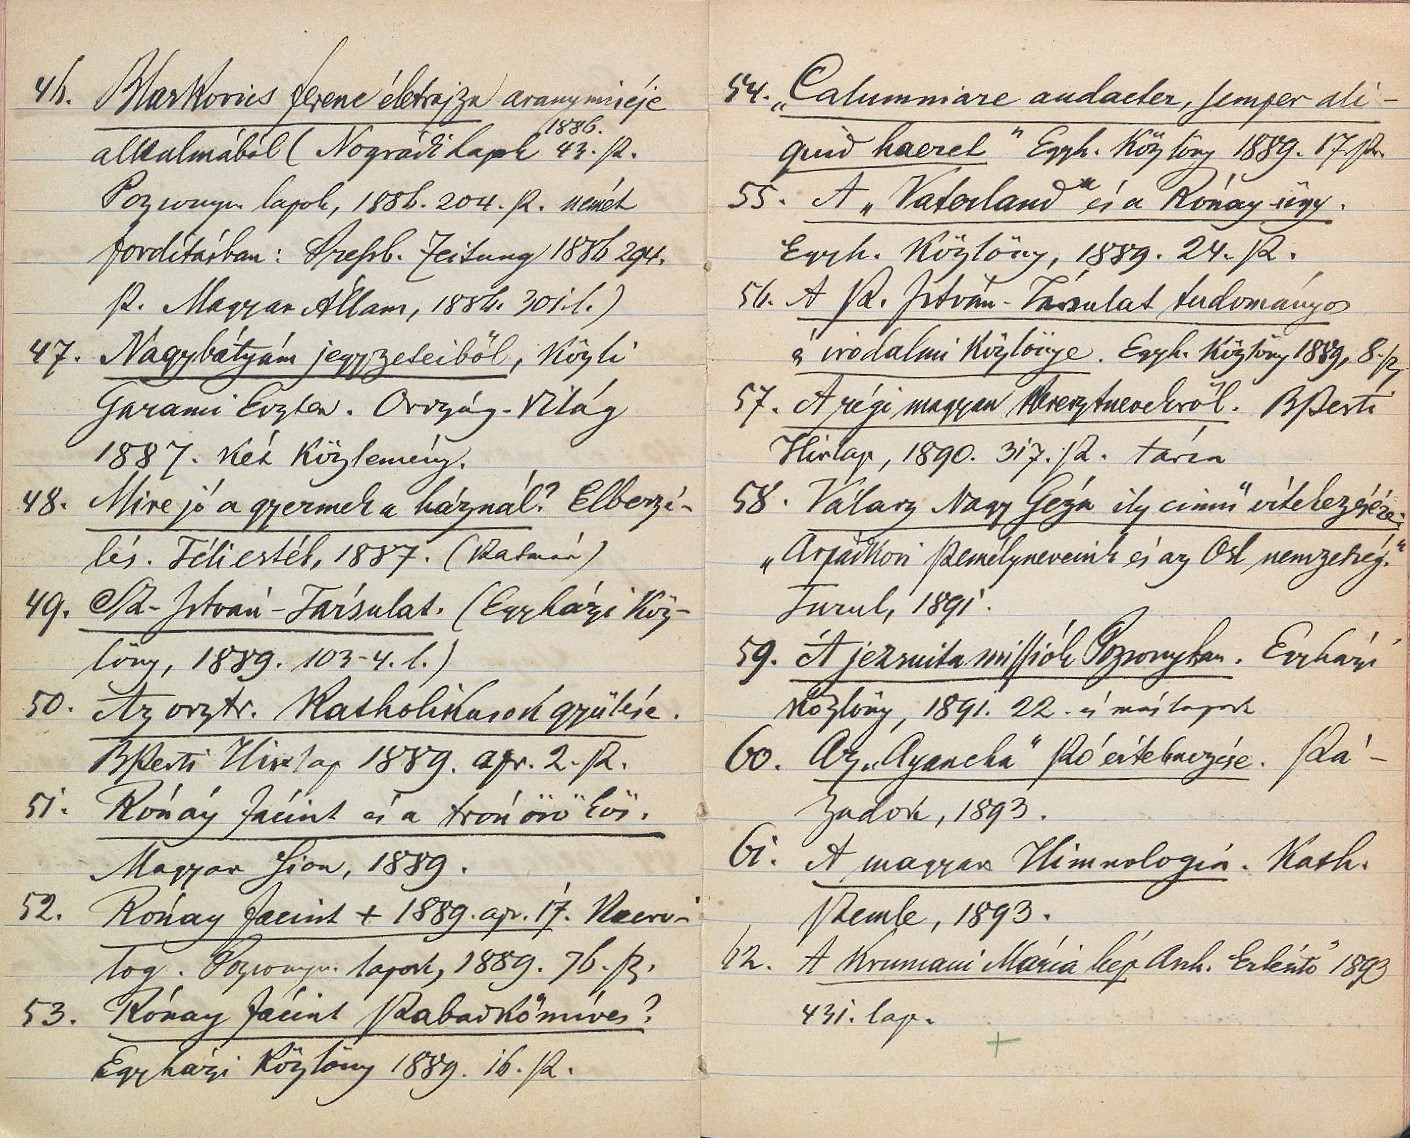 46. Markovics Ferenc életrajza aranymiséje
alkalmából (Nográdi lapok 1886. 43. sz.
Pozsonyv. lapok, 1886. 204. sz. német
fordításban: Pressb. Zeitung 1886 294.
sz. Magyar Állam, 1886. 301. l.)
47. Nagybátyám jegyzeteiből, közli
Garami Eszter. Ország-Világ
1887. két közlemény.
48. Mire jó a gyermek a háznál? Elbeszé-
lés. Téli esték, 1887. (Kalmár)
49. Sz-István-Társulat. (Egyházi Köz-
löny, 1889. 103-4. l.)
50. Az osztr. Katholikusok gyülése.
BPesti Hirlap 1889. apr. 2. sz.
51. Rónay Jácint és a trónörökös.
Magyar Sion, 1889.
52. Rónay Jácint + 1889. apr. 17.
Pozsonyv. lapok, 1889. 76. sz.
53. Rónay Jácint szabadkőmíves?
Egyházi Közlöny 1889. 16. sz.
54. „Calumniare audacter, semper ali-
quid haeret" Egyh. Közlöny 1889. 17. sz.
55. A „Vaterland" és a Rónay-ügy.
Egyh. Közlöny, 1889. 24. sz.
56. A sz. István-Társulat tudományos
s irodalmi közlönye. Egyh. Közlöny 1889, 8. sz.
57. A régi magyar keresztnevekről. BPesti
Hirlap, 1890. 317. sz. tárca
58. Válasz Nagy Géza ily cimű értekezésére:
„Árpádkori személyneveink és az Osl nemzetség."
Turul, 1891.
59. A jezsuita missiók Pozsonyban. Egyházi
Közlöny, 1891. 22. és más lapok
60. Az „Ayancha" szó értelmezése. Szá-
zadok, 1893.
61. A magyar Himnologia. Kath.
szemle, 1893.
62. A Krumaui Mária kép Arch. Értesítő 1893
431. lap.